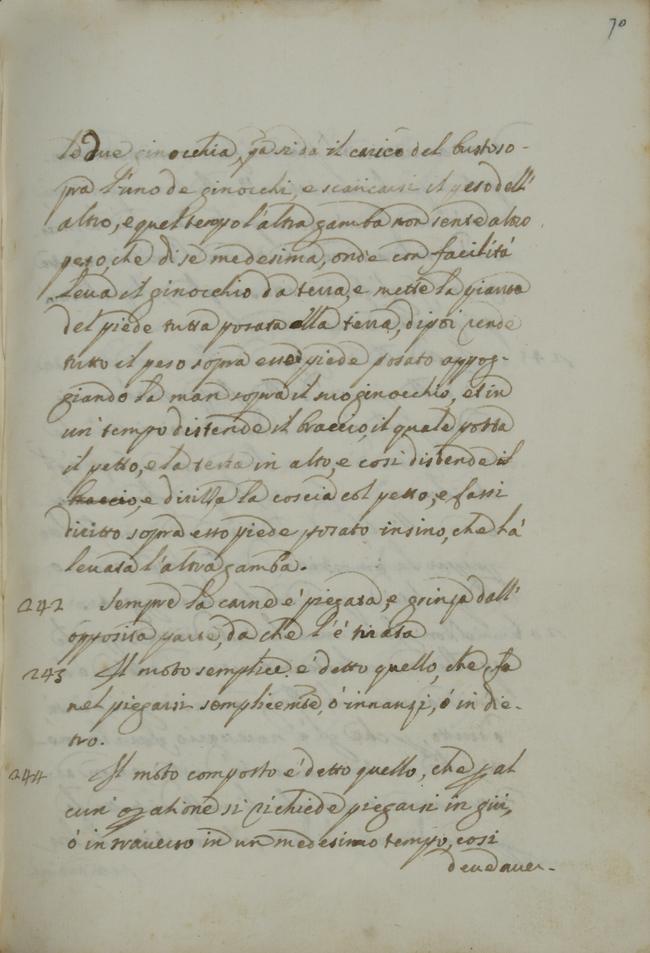 70
le due ginocchia, ma si dà il carico del busto so-
pra l'uno de ginocchi, e scaricarsi il peso dell'
altro, e quel tempo l'altra gamba non sente altro
peso, che di se medesima, onde con facilità
leva il ginocchio da terra, e mette la pianta
del piede tutta posata alla terra, dipoi rende
tutto il peso sopra esso piede posato appog-
giando la man sopra il suo ginocchio, et in
un tempo distende il braccio, il quale porta
il petto, e la testa in alto, e così distende il
braccio, e dirizza la coscia col petto, e fassi
diritto sopra esso piede posato insino, che hà
levata l'altra gamba.
242 Sempre la carne è piegata, e grinza dall'
opposita parte, da che l'è tirata
243 Il moto semplice è detto quello, che fa
nel piegarsi semplicemte, ò innanzi, ó in die-
tro.
244 Il moto composto è detto quello, che p al
cun' opatione si richiede piegarsi in giù,
ò in traverso in un medesimo tempo, così